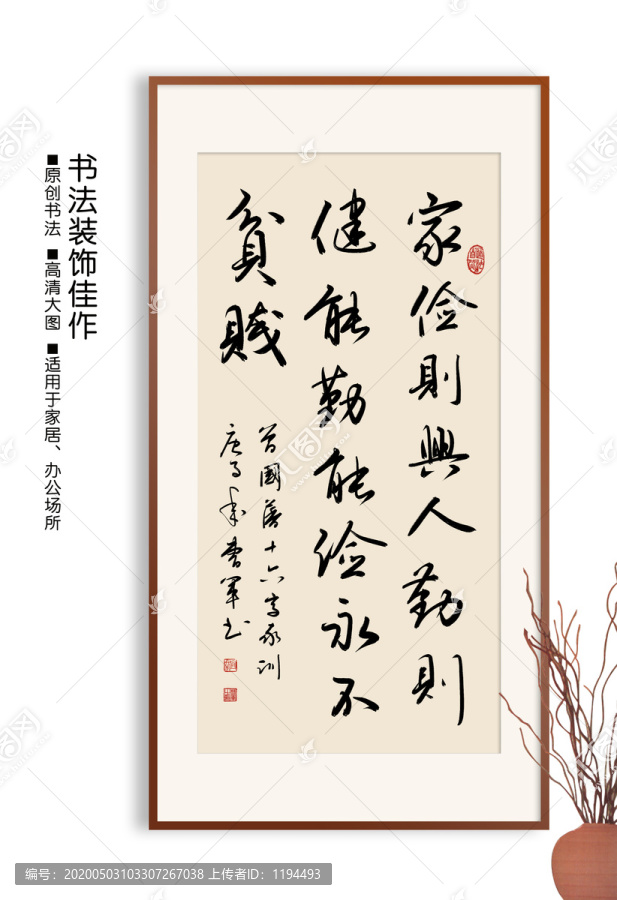 书法装饰佳作
■原创书法 ■高清大图 ■适用于家居、办公场所
家俭則興人勤則
健能勤能俭永不
貧賤
曾國藩十六字家训
庚子年曹军书
编号：20200503103307267038 上传者ID：1194493
汇图